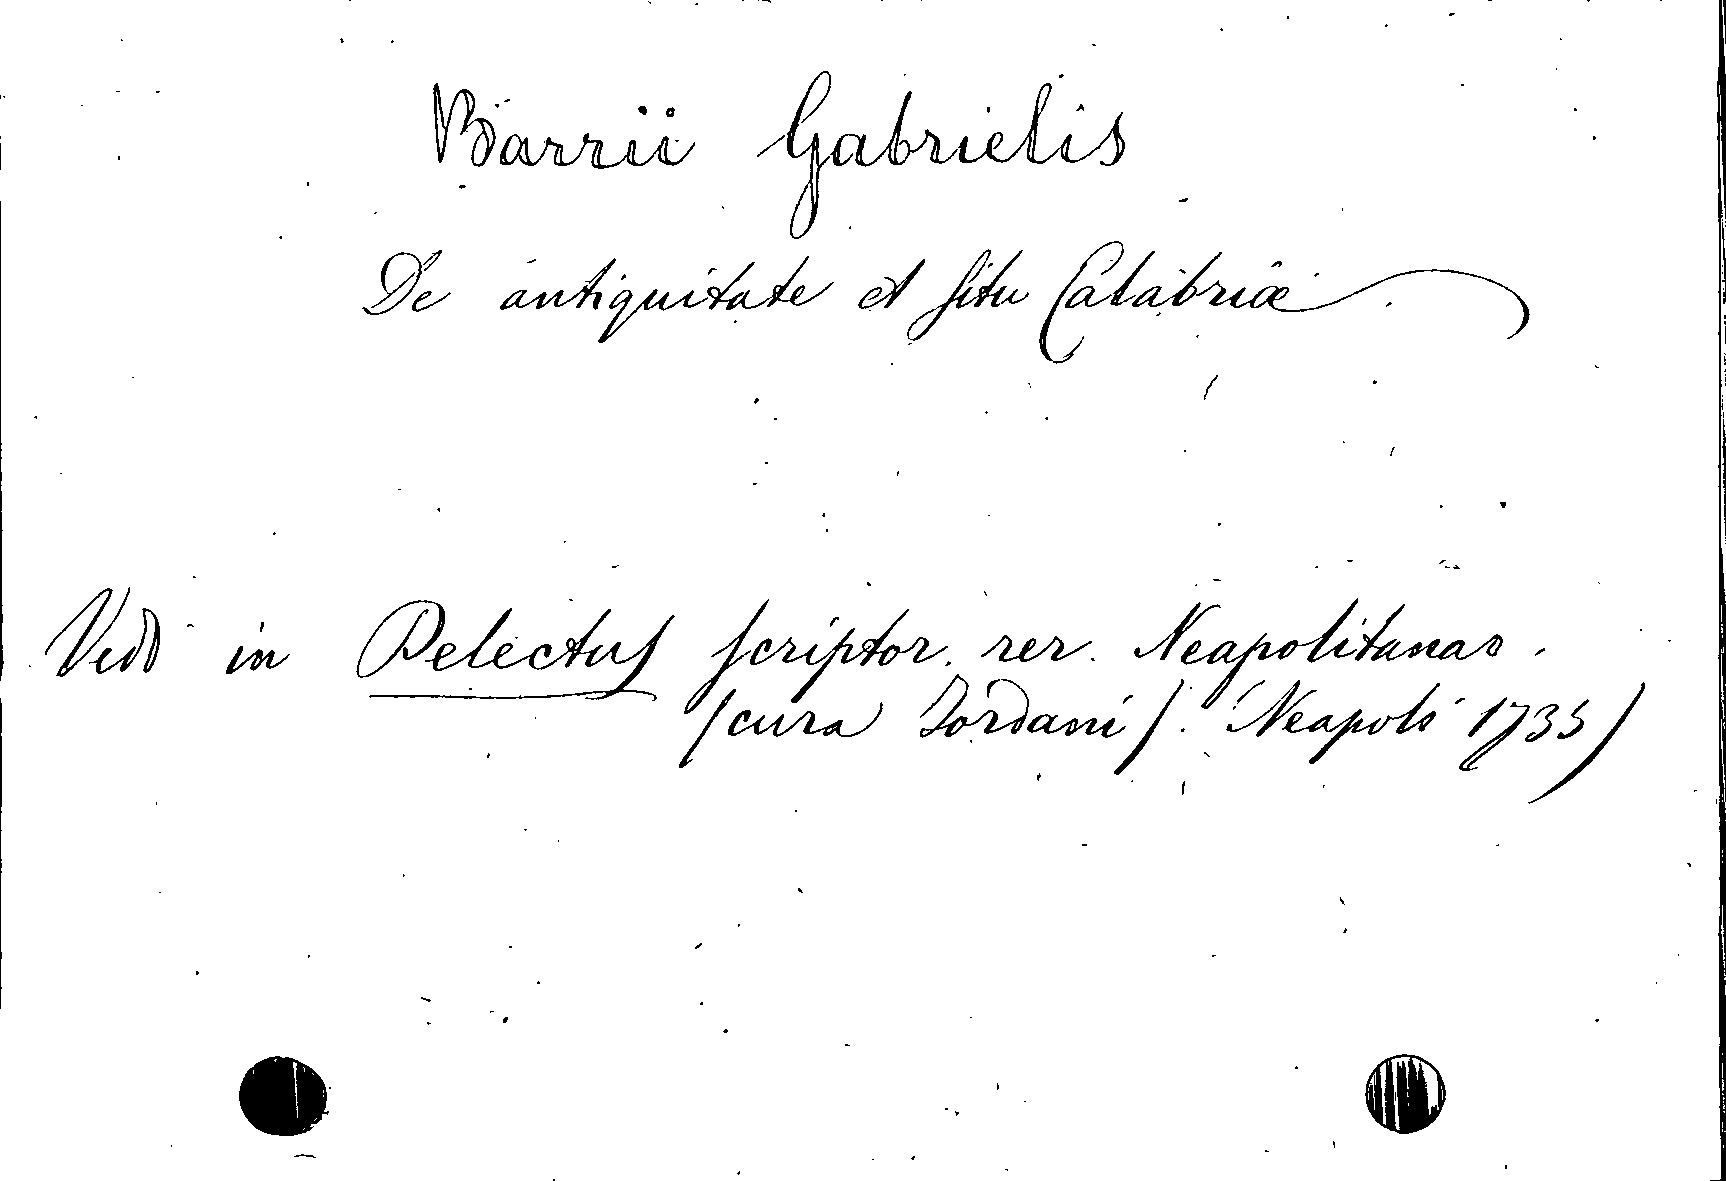 Barrii Gabrielis
De antiquitate et situ Calabriæ
Vedi in Delectus scriptor. rer. Neapolitanar.
(cura Jordani). Neapoli 1735)